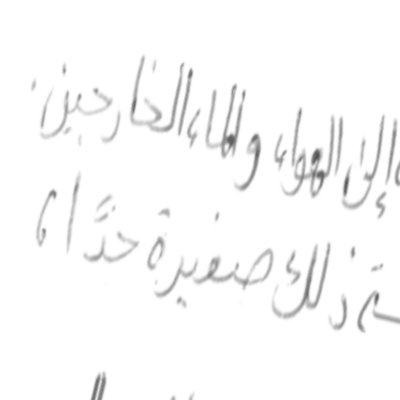 إلى الهواء والماء الخارجين.
ذلك صغيرة جدًا،